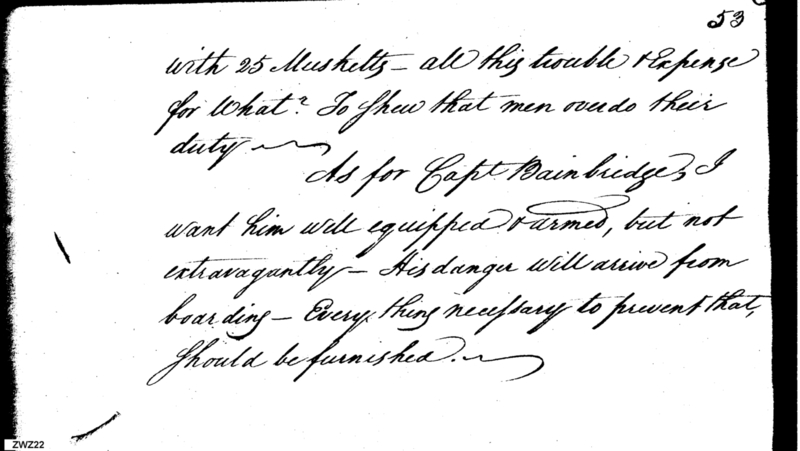 53
with 25 Musketts – all this trouble & Expense
for What? To Shew that men overdo their
duty
As for Capt Bainbridge, I
want him well equipped & armed, but not
extravagantly – His danger will arrive from
boarding – Every thing necessary to prevent that,
should be furnished.
ZWZ22